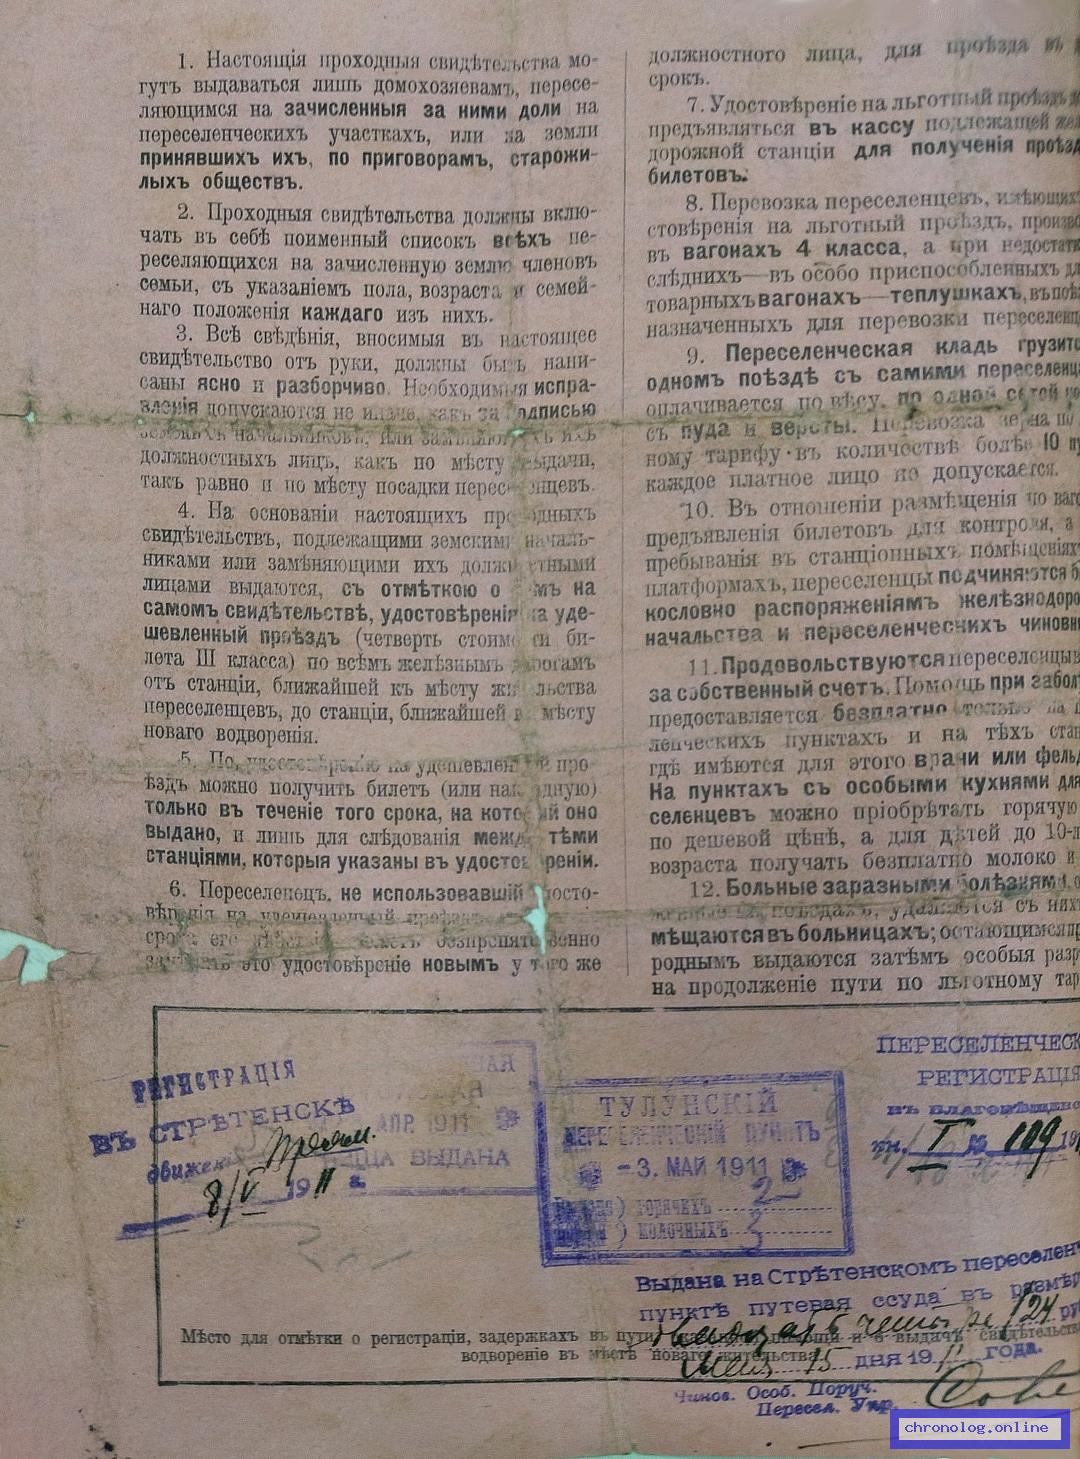 1. Настоящія проходныя свидѣтельства мо-
гутъ выдаваться лишь домохозяевамъ, пересе-
ляющимся на зачисленныя за ними доли на
переселенческихъ участкахъ, или на земли
принявшихъ ихъ, по приговорамъ, старожи-
лыхъ обществъ.
2. Проходныя свидѣтельства должны вклю-
чать въ себѣ поименный списокъ всѣхъ пе-
реселяющихся на зачисленную землю членовъ
семьи, съ указаніемъ пола, возраста и семей-
наго положенія каждаго изъ нихъ.
3. Всѣ свѣдѣнія, вносимыя въ настоящее
свидѣтельство отъ руки, должны быть напи-
саны ясно и разборчиво. Необходимыя испра-
вленія допускаются не иначе, какъ за подписью
земскихъ начальниковъ, или замѣняющихъ ихъ
должностныхъ лицъ, какъ по мѣсту выдачи,
такъ равно и по мѣсту посадки переселенцевъ.
4. На основаніи настоящихъ проходныхъ
свидѣтельствъ, подлежащими земскими началь-
никами или замѣняющими ихъ должностными
лицами выдаются, съ отмѣткою о томъ на
самомъ свидѣтельствѣ, удостовѣренія на уде-
шевленный проѣздъ (четверть стоимости би-
лета III класса) по всѣмъ желѣзнымъ дорогамъ
отъ станціи, ближайшей къ мѣсту жительства
переселенцевъ, до станціи, ближайшей къ мѣсту
новаго водворенія.
5. По удостовѣренію на удешевленный про-
ѣздъ можно получить билетъ (или накладную)
только въ теченіе того срока, на который оно
выдано, и лишь для слѣдованія между тѣми
станціями, которыя указаны въ удостовѣреніи.
6. Переселенецъ, не использовавшій удосто-
вѣренія на удешевленный проѣздъ
срока его дѣйствія, можетъ безпрепятственно
замѣнить это удостовѣреніе новымъ у того же
должностного лица, для проѣзда въ
срокъ.
7. Удостовѣреніе на льготный проѣздъ
предъявляться въ кассу подлежащей жел
дорожной станціи для полученія проѣзд
билетовъ.
8. Перевозка переселенцевъ, имѣющихъ
стовѣренія на льготный проѣздъ, произво
въ вагонахъ 4 класса, а при недостатк
слѣднихъ—въ особо приспособленныхъ дл
товарныхъ вагонахъ—теплушкахъ, въ поѣз
назначенныхъ для перевозки переселенц
9. Переселенческая кладь грузитс
одномъ поѣздѣ съ самими переселенца
оплачивается по вѣсу, по одной сотой
съ пуда и версты. Перевозка зерна по
ному тарифу въ количествѣ болѣе 10 пу
каждое платное лицо не допускается.
10. Въ отношеніи размѣщенія по ваго
предъявленія билетовъ для контроля, а
пребыванія въ станціонныхъ помѣщеніяхъ
платформахъ, переселенцы подчиняются б
кословно распоряженіямъ желѣзнодоро
начальства и переселенческихъ чиновни
11. Продовольствуются переселенцы в
за собственный счетъ. Помощь при забол
предоставляется безплатно только на п
ленческихъ пунктахъ и на тѣхъ стан
гдѣ имѣются для этого врачи или фельд
На пунктахъ съ особыми кухнями для
селенцевъ можно пріобрѣтать горячую
по дешевой цѣнѣ, а для дѣтей до 10-л
возраста получать безплатно молоко и
12. Больные заразными болѣзнями,
поѣздахъ, удаляются съ нихъ
мѣщаются въ больницахъ; остающимся пр
роднымъ выдаются затѣмъ особыя разр
на продолженіе пути по льготному тар
РЕГИСТРАЦІЯ
ВЪ СТРѢТЕНСКѢ
движен
8/V 1911 г.
АПР. 1911
ПИЩА ВЫДАНА
ТУЛУНСКІЙ
ПЕРЕСЕЛЕНЧЕСКІЙ ПУНКТЪ
-3. МАЙ 1911
горячихъ 2
молочныхъ 3
ПЕРЕСЕЛЕНЧЕСК
РЕГИСТРАЦІЯ
въ Благовѣщенс
кн. I № 109
Выдана на Стрѣтенскомъ переселен
пунктѣ путевая ссуда въ размѣр
124 ру
Мая 15 дня 1911 года.
Мѣсто для отмѣтки о регистраціи, задержкахъ въ пути, и о выдачѣ свидѣтельства
водвореніе въ мѣстѣ новаго жительства.
Чинов. Особ. Поруч.
Пересел. Упр.
chronolog.online